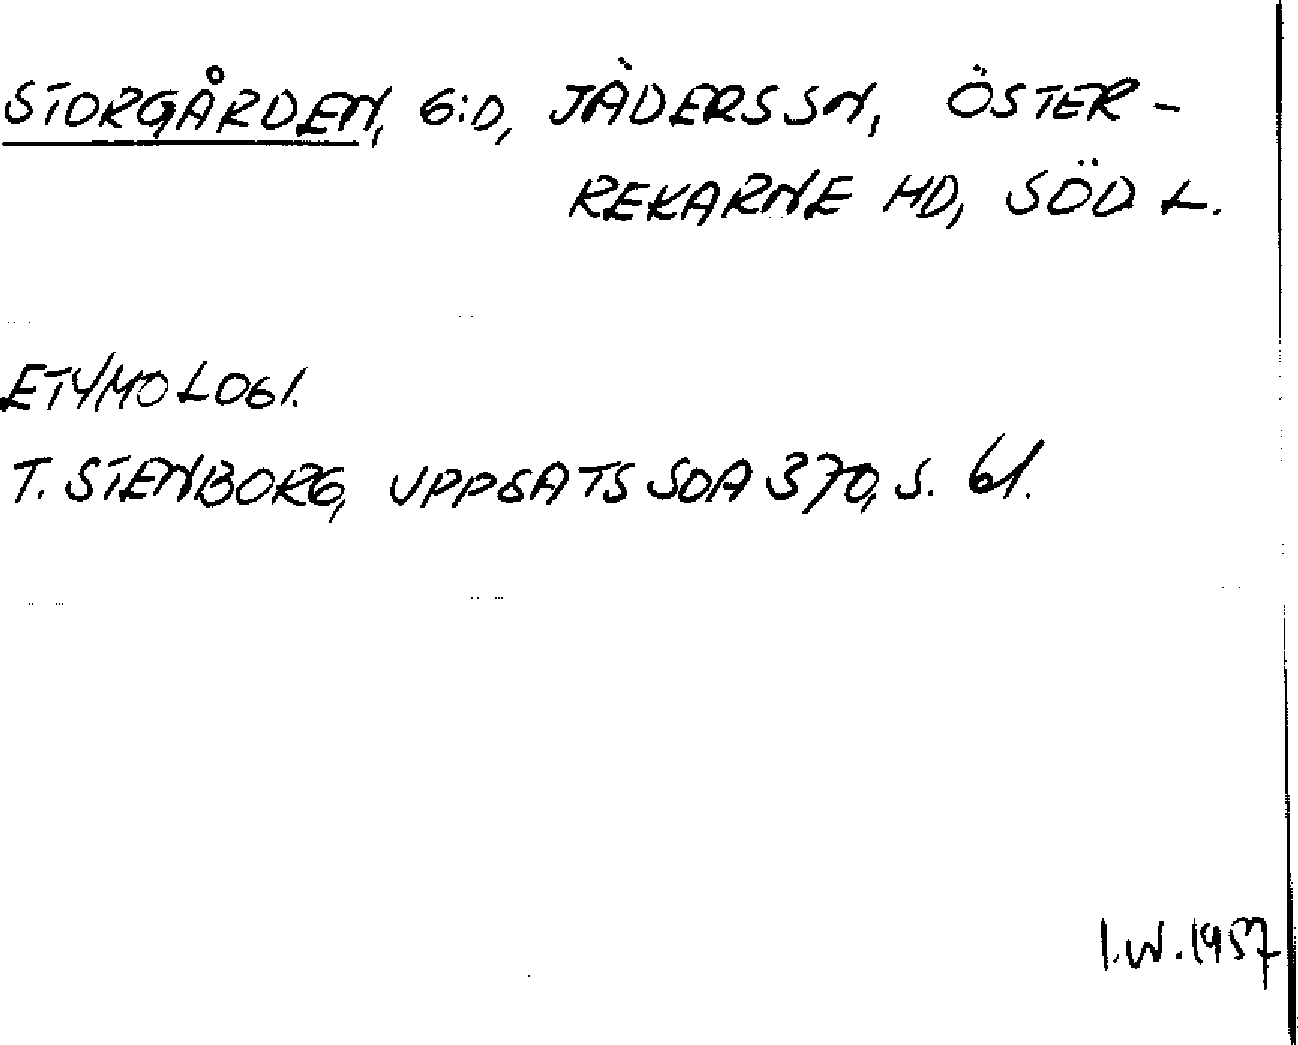 STORGÅRDEN, G:D, JÄDERS SN, ÖSTER-
REKARNE HD, SÖD L.
ETYMOLOGI.
T. STENBORG, UPPSATS SOA 370, S. 61.
I.W. 1957